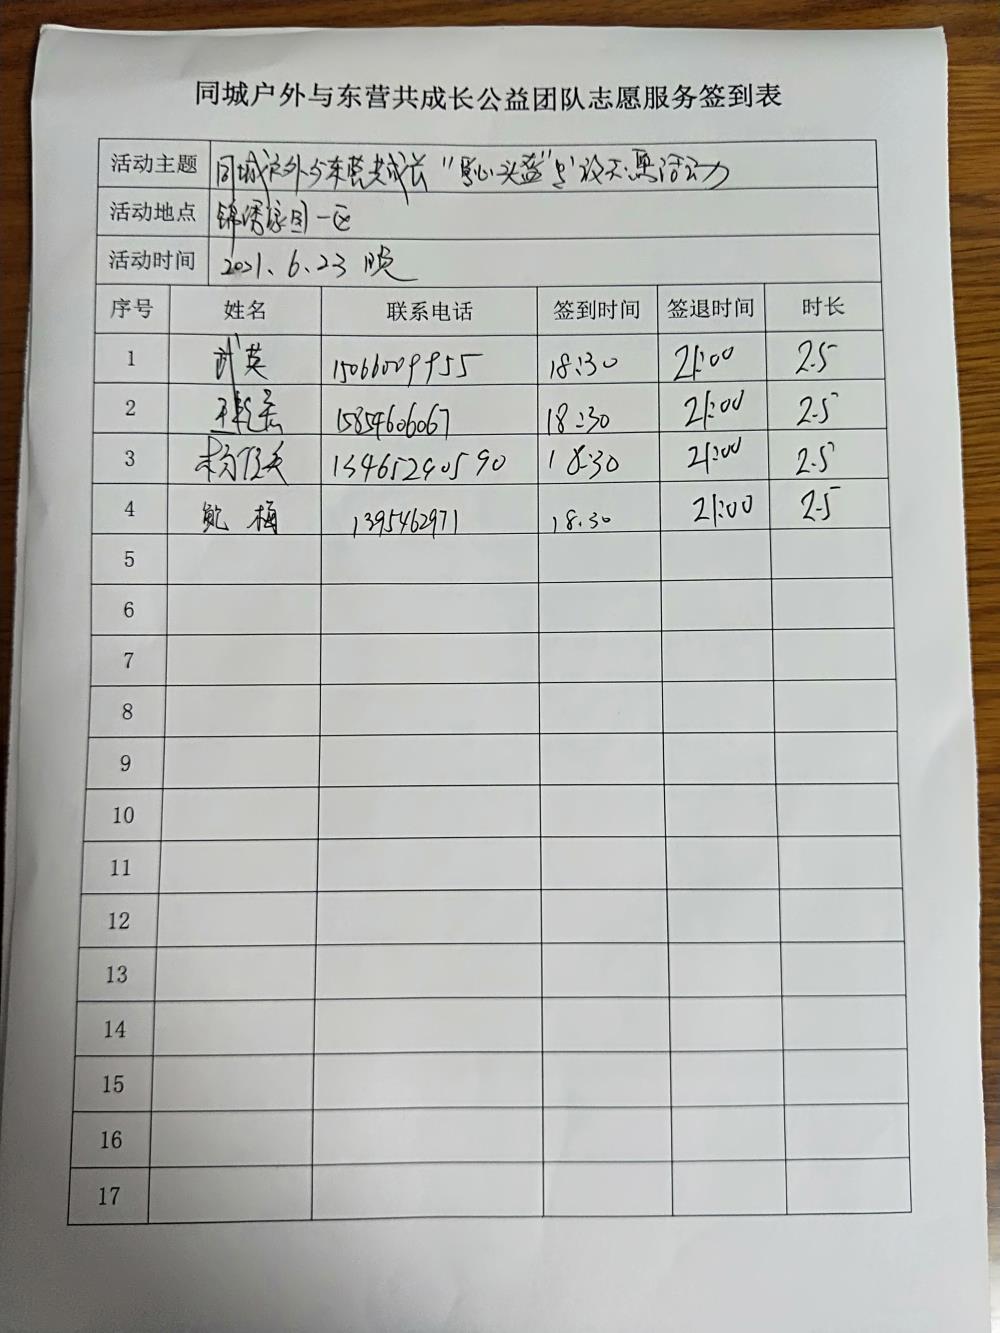 同城户外与东营共成长公益团队志愿服务签到表
活动主题 同城户外与东营共成长"爱心头盔"
活动地点 锦绣家园一区
活动时间 2021.6.23 晚
序号 姓名 联系电话 签到时间 签退时间 时长
1 武英 15066009955 18:30 21:00 2.5
2 15854606067 18:30 21:00 2.5
3 13465290590 18:30 21:00 2.5
4 鲍梅 1395462971 18:30 21:00 2.5
5
6
7
8
9
10
11
12
13
14
15
16
17